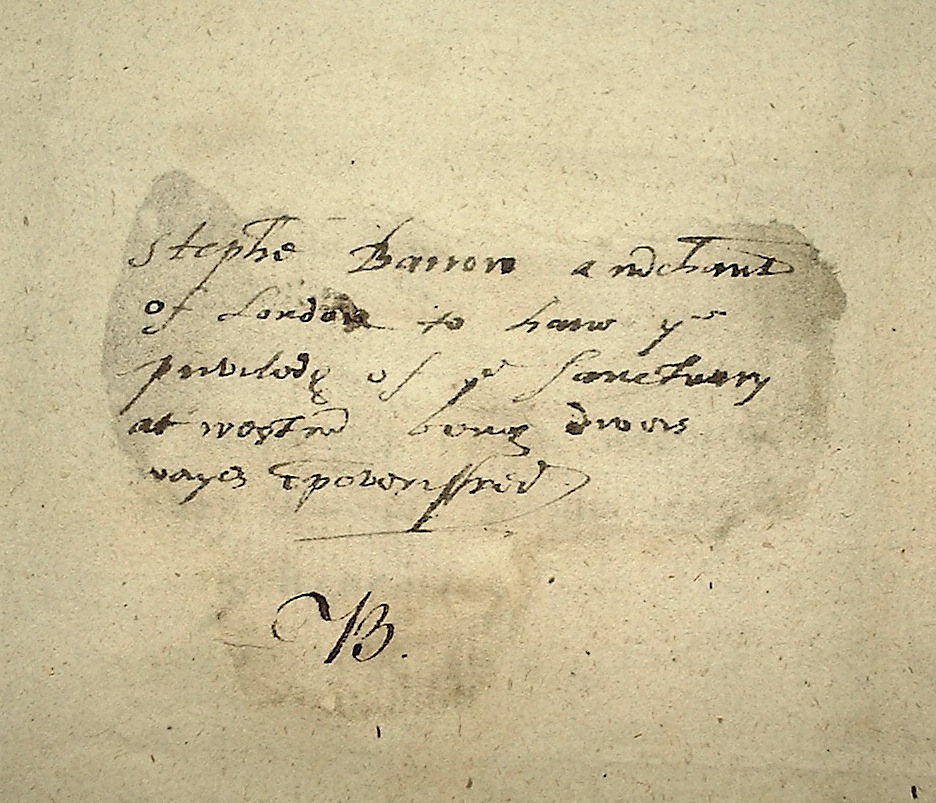 Stephē Barron a m̄chaunt
of London to have yᵉ
priviledg of yᵉ Sanctuary
at westm̄ beyng divers
wayes īpoverisshed
B.